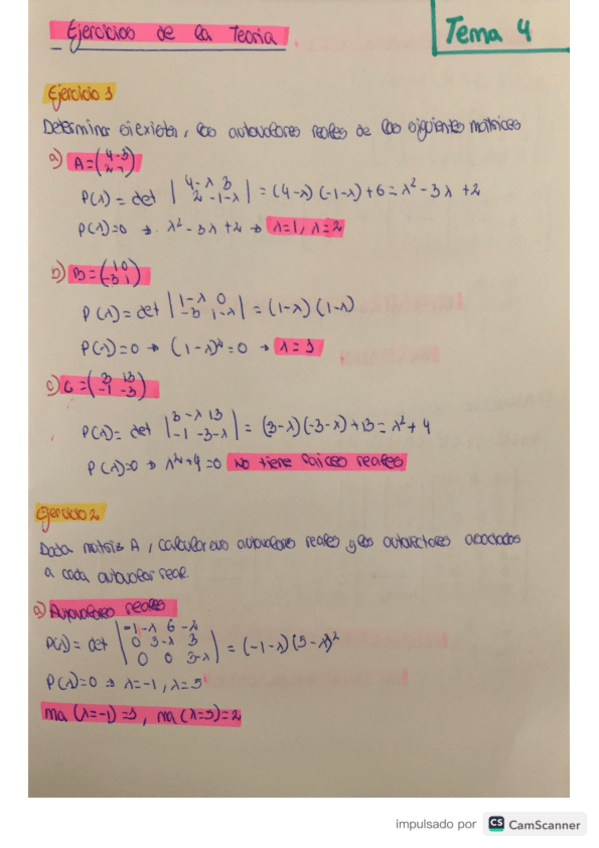 Ejercicios de la Teoría.
Tema 4
Ejercicio 1
Determinar si existen, los autovalores reales de las siguientes matrices
a) A=(4 -3
2 -1)
P(λ) = det |4-λ 3
2 -1-λ| = (4-λ)(-1-λ)+6 = λ² - 3λ +2
P(λ)=0 → λ² - 3λ +2 → λ=1, λ=2
b) B=(1 0
-3 1)
P(λ)= det |1-λ 0
-3 1-λ| = (1-λ)(1-λ)
P(λ)=0 → (1-λ)²=0 → λ=1
c) C=(3 13
-1 -3)
P(λ)= det |3-λ 13
-1 -3-λ| = (3-λ)(-3-λ)+13 = λ²+4
P(λ)=0 → λ²+4=0 No tiene raíces reales
Ejercicio 2
Dada matriz A, calcular sus autovalores reales y los autovectores asociados
a cada autovalor real.
a) Autovalores reales
P(λ)= det |-1-λ 6 -2
0 5-λ 3
0 0 5-λ| = (-1-λ)(5-λ)²
P(λ)=0 → λ=-1, λ=5
ma (λ=-1)=1, ma (λ=5)=2
impulsado por CS CamScanner